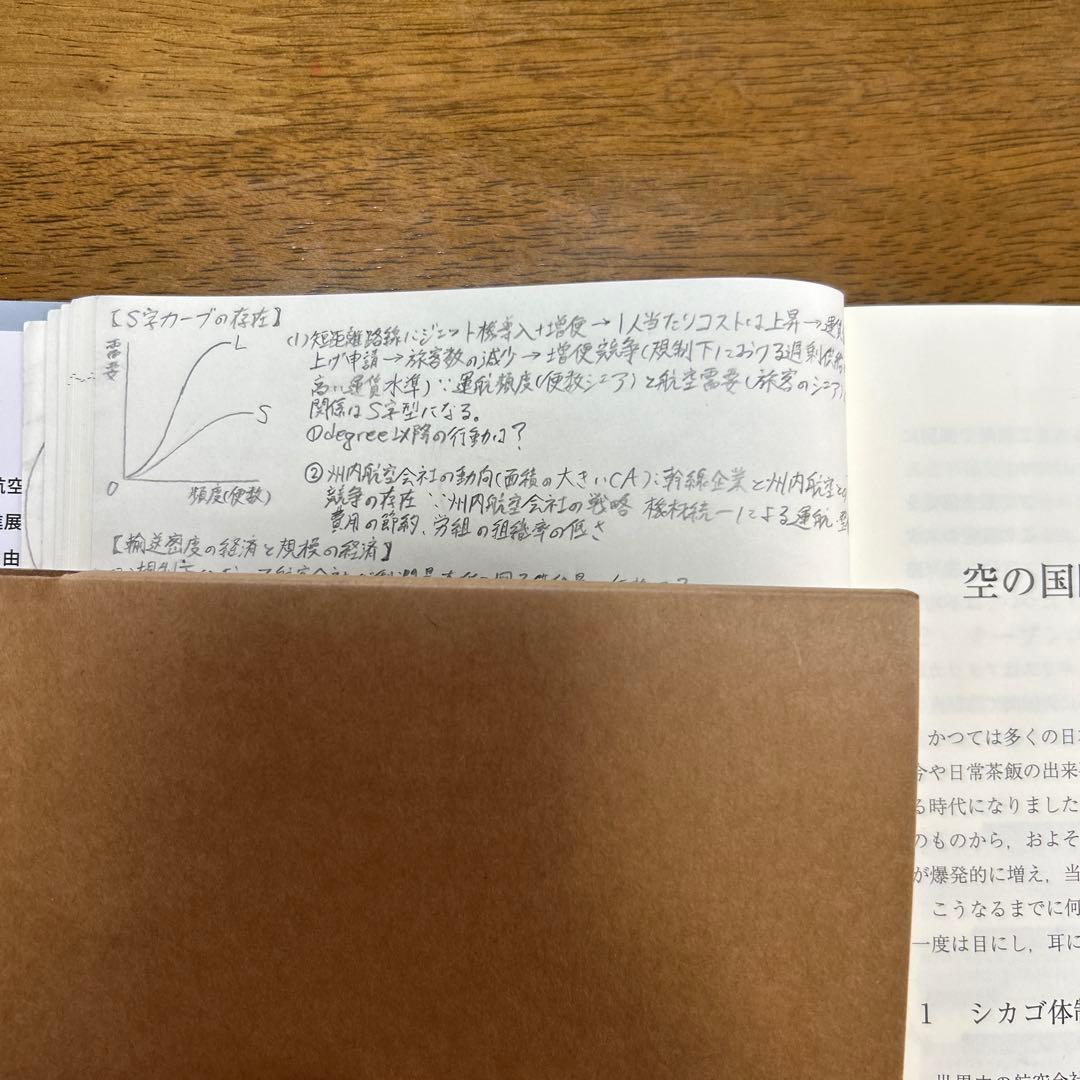 【S字カーブの存在】
需要
L
S
0
頻度(便数)
(1)短距離路線にジェット機導入+増便→1人当たりコストは上昇→運賃
上げ申請→旅客数の減少→増便競争(規制下における過剰供給
高い運賃水準)∵運航頻度(便数シェア)と航空需要(旅客のシェア)
関係はS字型になる。
①degree以降の行動は?
②州内航空会社の動向(面積の大きいCA):幹線企業と州内航空との
競争の存在∵州内航空会社の戦略 機材統一による運航・整
費用の節約、労組の組織率の低さ
【輸送密度の経済と規模の経済】
航空
進展
由
空の国
かつては多くの日
今や日常茶飯の出来
る時代になりました
のものから,およそ
が爆発的に増え,当
こうなるまでに何
一度は目にし,耳に
1 シカゴ体制
世界中の航空会